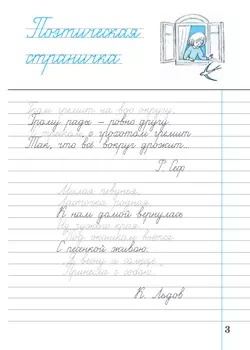 Поэтическая
страничка
Гром гремит на всю округу.
Грому рады – ровно другу.
с грохотом гремит
Так, что всё вокруг дрожит...
Р. Сеф
Милая певунья,
Ласточка родная,
К нам домой вернулась
Из чужого края.
Под окошком вьётся
С песенкой живою:
"Я весну и солнце
Принесла с собою..."
К. Льдов
3